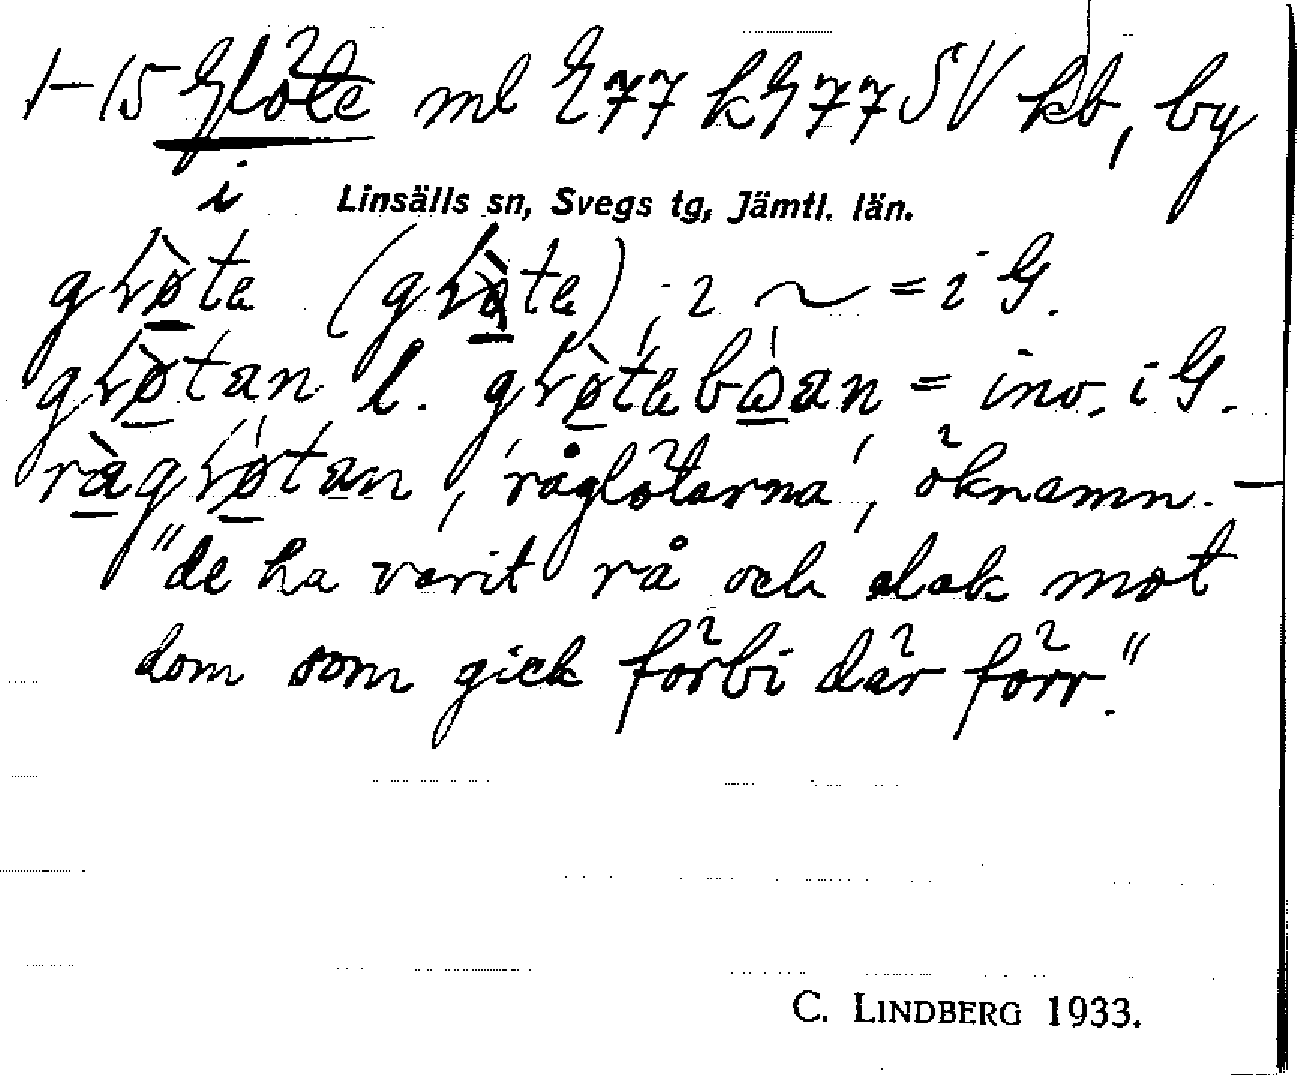 1-15 Glöte ml G77 kG77SV kb, by
i Linsälls sn, Svegs tg, Jämtl. län.
glø̀te (glò̀te), 2 ~ = i G.
glø̀tan l. glø̀tebωan = inv. i G.
ràgløtan, 'råglötarna', öknamn. –
"de ha varit rå och elak mot
dom som gick förbi där förr."
C. LINDBERG 1933.